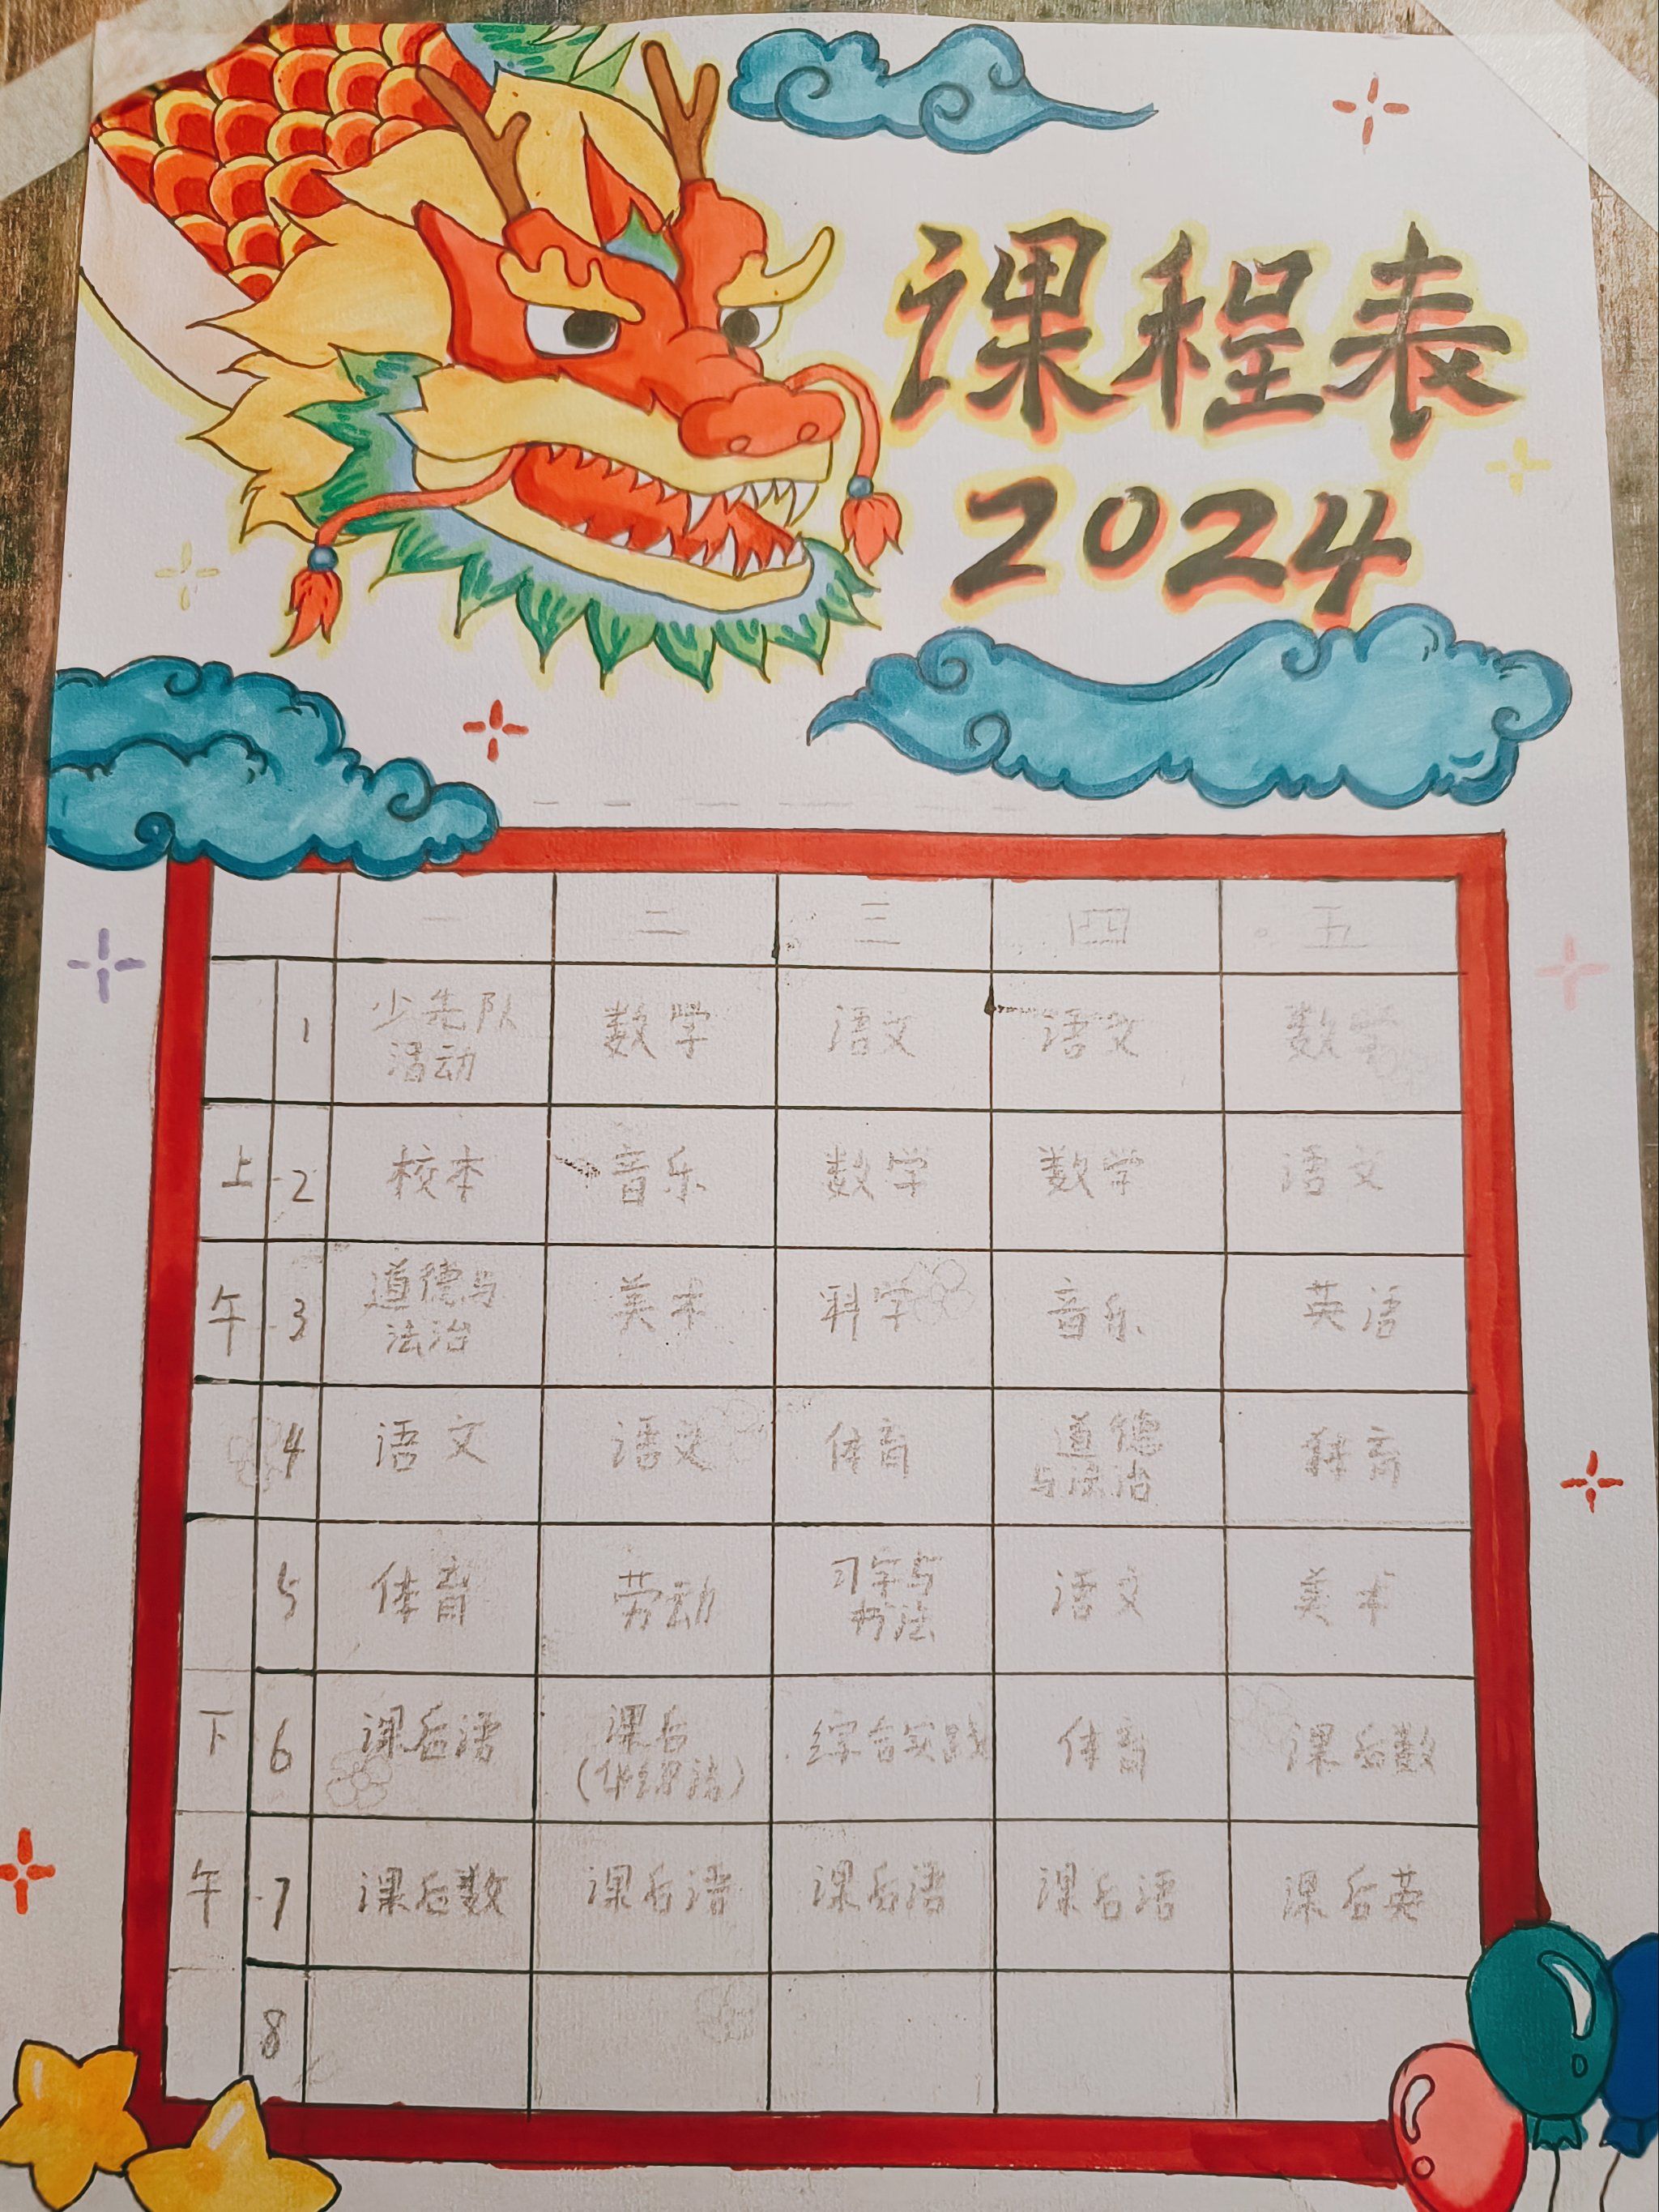 课程表
2024
一 二 三 四 五
1 少先队活动 数学 语文 语文 数学
上 2 校本 音乐 数学 数学 语文
午 3 道德与法治 美术 科学 音乐 英语
4 语文 语文 体育 道德与法治 体育
5 体育 劳动 习字与书法 语文 美术
下 6 课后语 课后 综合实践 体育 课后数
午 7 课后数 课后语 课后语 课后语 课后英
8